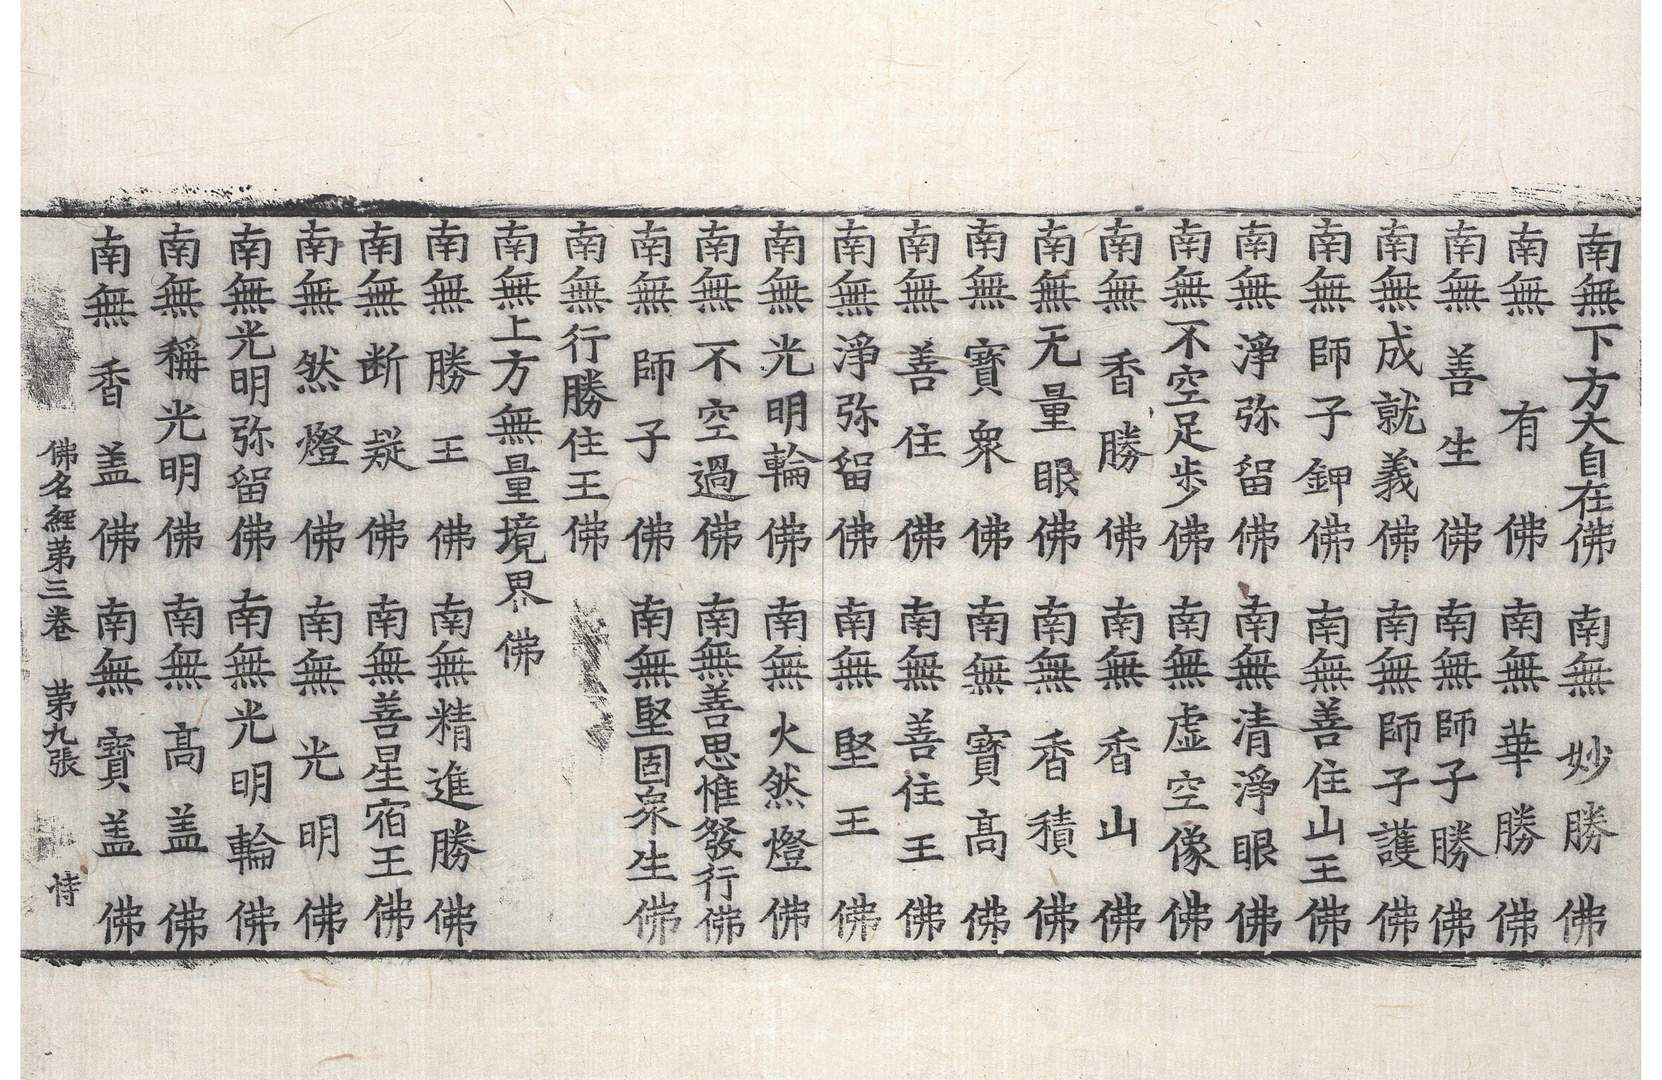 南無下方大自在佛 南無妙勝佛
南無有佛 南無華勝佛
南無善生佛 南無師子勝佛
南無成就義佛 南無師子護佛
南無師子鉀佛 南無善住山王佛
南無淨弥留佛 南無清淨眼佛
南無不空足步佛 南無虛空像佛
南無香勝佛 南無香山佛
南無无量眼佛 南無香積佛
南無寶衆佛 南無寶髙佛
南無善住佛 南無善住王佛
南無淨弥留佛 南無堅王佛
南無光明輪佛 南無火然燈佛
南無不空過佛 南無善思惟發行佛
南無師子佛 南無堅固衆生佛
南無行勝住王佛
南無上方無量境界佛
南無勝王佛 南無精進勝佛
南無断疑佛 南無善星宿王佛
南無然燈佛 南無光明佛
南無光明弥留佛 南無光明輪佛
南無稱光明佛 南無髙盖佛
南無香盖佛 南無寶盖佛
佛名經第三卷 第九張 恃